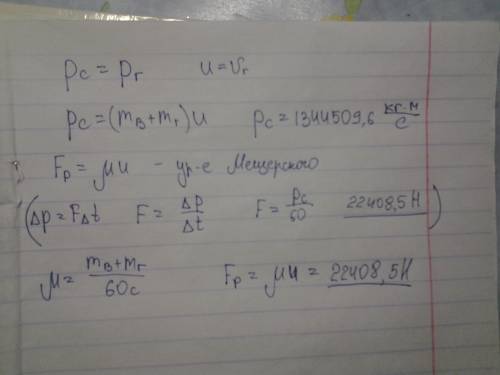 pс = pг u = vг
pс = (mв + mг)u pс = 1344509,6 кг·м/с
Fр = μu - ур-е Мещерского
(Δp = FΔt F = Δp/Δt F = pс/60 22408,5 Н)
μ = (mв + mг)/60с Fр = μu = 22408,5 Н